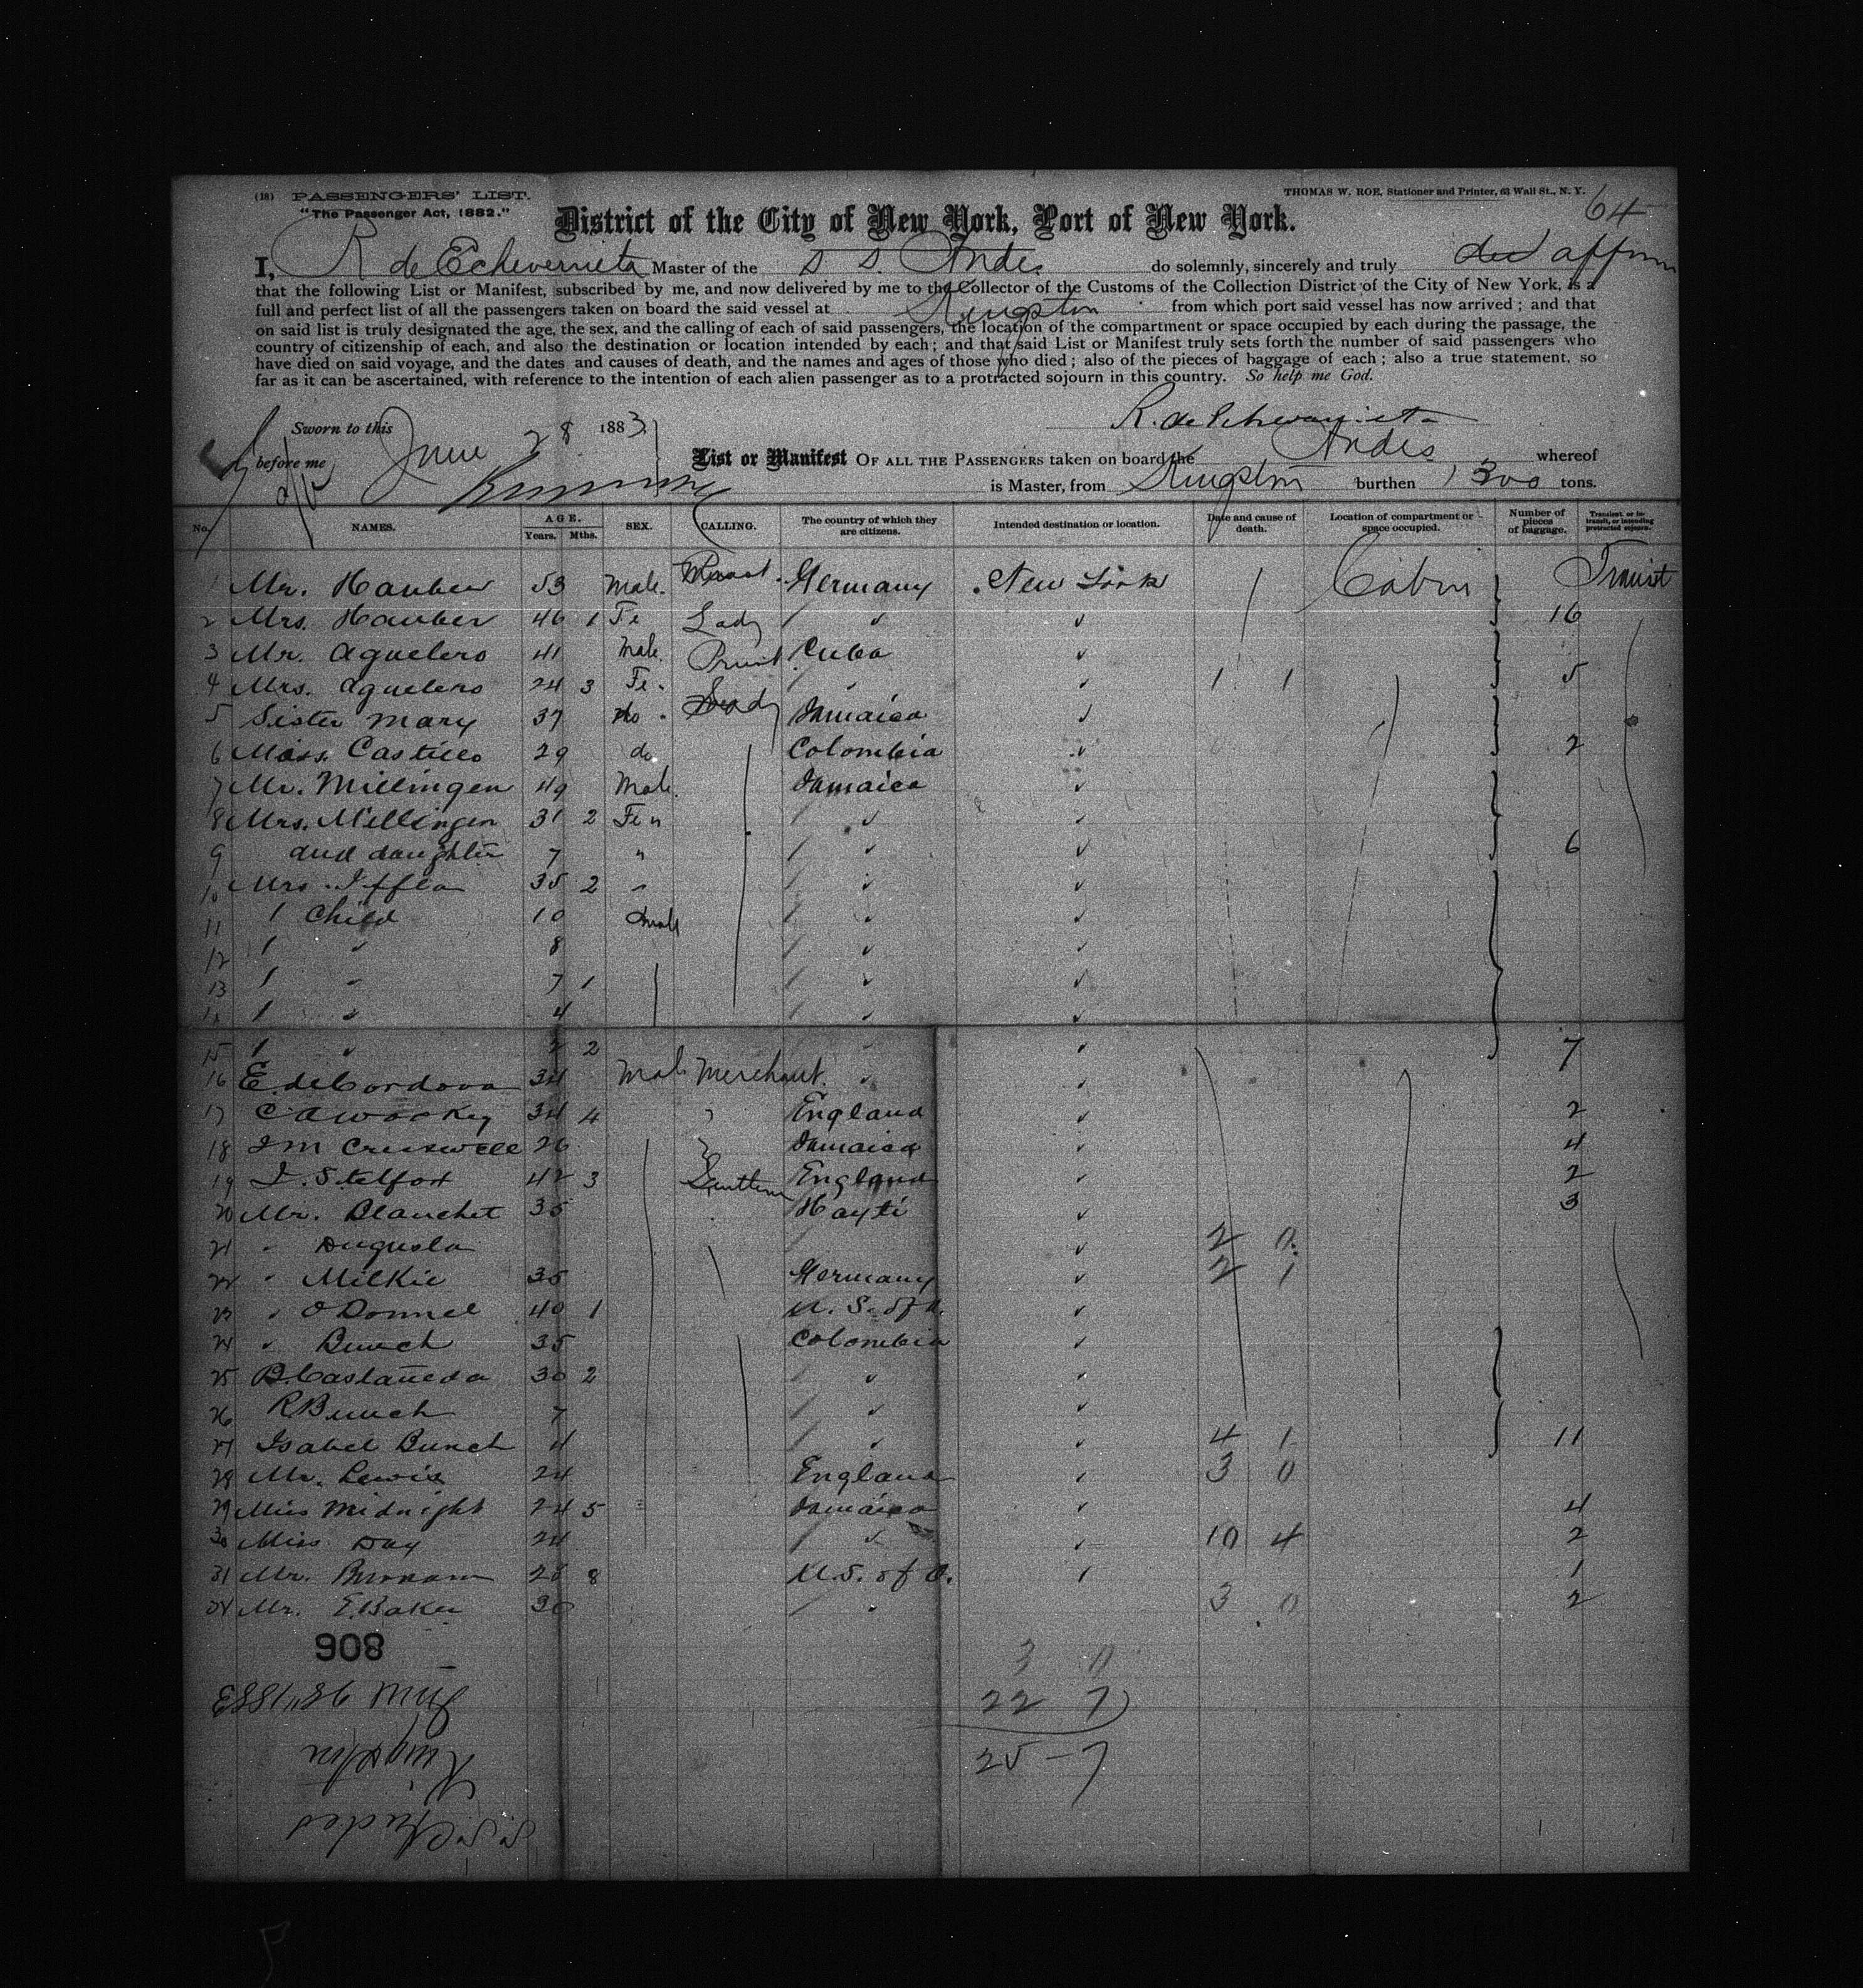 (18) PASSENGERS' LIST.
"The Passenger Act, 1882."
THOMAS W. ROE, Stationer and Printer, 63 Wall St., N. Y.
64
District of the City of New York, Port of New York.
I, R de Echeverrieta Master of the S S. Andes do solemnly, sincerely and truly affirm
that the following List or Manifest, subscribed by me, and now delivered by me to the Collector of the Customs of the Collection District of the City of New York, is a
full and perfect list of all the passengers taken on board the said vessel at Kingston from which port said vessel has now arrived; and that
on said list is truly designated the age, the sex, and the calling of each of said passengers, the location of the compartment or space occupied by each during the passage, the
country of citizenship of each, and also the destination or location intended by each; and that said List or Manifest truly sets forth the number of said passengers who
have died on said voyage, and the dates and causes of death, and the names and ages of those who died; also of the pieces of baggage of each; also a true statement, so
far as it can be ascertained, with reference to the intention of each alien passenger as to a protracted sojourn in this country. So help me God.
Sworn to this June 28 1883
R. de Echeverrieta
before me
List or Manifest OF ALL THE PASSENGERS taken on board the Andes whereof
is Master, from Kingston burthen 1300 tons.
No. NAMES. AGE. Years. Mths. SEX. CALLING. The country of which they are citizens. Intended destination or location. Date and cause of death. Location of compartment or space occupied. Number of pieces of baggage. Transient, or in-transit, or intending protracted sojourn.
1 Mr. Hauber 53 Male. Germany New York Cabin Transit
2 Mrs. Hauber 46 1 Fe Lady " 16
3 Mr. Aguelero 41 Male Cuba
4 Mrs. Aguelero 24 3 Fe. Lady 1 1 5
5 Sister Mary 37 do. Jamaica
6 Miss. Castillo 29 do Colombia 2
7 Mr. Millingen 49 Male. Jamaica
8 Mrs. Millingen 31 2 Fe "
9 and daughter 7 " 6
10 Mrs. Iffla 35 2 "
11 1 Child 10 Male
12 1 " 8
13 1 " 7 1
14 1 " 4
15 1 " 2 2 7
16 E. deCordova 34 Male Merchant. "
17 34 4 " England 2
18 J M Cresswell 26 Jamaica 4
19 J. Stelfox 42 3 England 2
20 Mr. Blanchet 35 Hayti 3
21 " 2 0
22 " Milkie 35 Germany 2 1
23 " O Donnel 40 1 U. S. of A.
24 " Bunch 35 Colombia
25 B. Castañeda 30 2 "
26 R Bunch 7 "
27 Isabel Bunch 4 " 4 1 11
28 Mr. Lewis 24 England 3 0
29 Miss Midnight 24 5 Jamaica 4
30 Miss Day 24 " 10 4 2
31 Mr. 28 8 U.S. of A. 1
Mr. E. Baker 30 " 3 0 2
908
3 0
22 7
25 - 7
June 28"/1883
Kingston
S.S. Andes